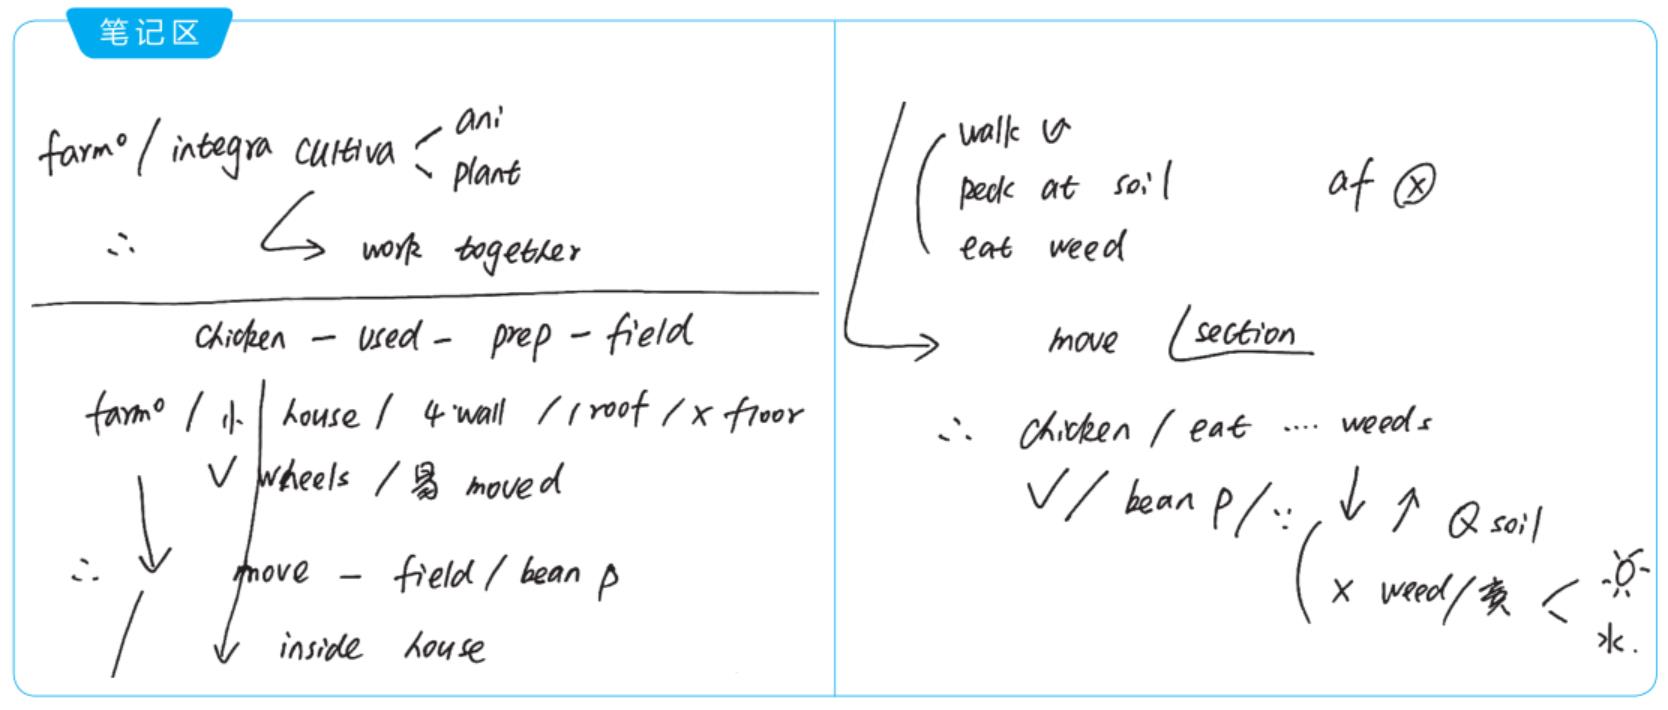 笔记区
farm° / integra cultiva < ani
plant
∴ work together
chicken - used - prep - field
farm° / 小 house / 4 wall / 1 roof / x floor
✓ wheels / 易 moved
∴ move - field / bean p
inside house
walk
peck at soil af ⓧ
eat weed
move section
∴ chicken / eat .... weeds
✓ / bean p / ∵ ↓ ↑ Q soil
x weed / <
水.